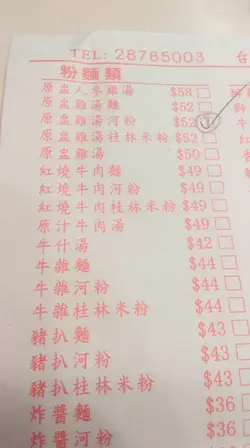 TEL: 28785003 台
粉麵類
原盅人參雞湯 $58
原盅雞湯麵 $52
原盅雞湯河粉 $52 1
原盅雞湯桂林米粉 $52
原盅雞湯 $50
紅燒牛肉麵 $49
紅燒牛肉河粉 $49
紅燒牛肉桂林米粉 $49
原汁牛肉湯 $49
牛什湯 $42
牛雜麵 $44
牛雜河粉 $44
牛雜桂林米粉 $44
豬扒麵 $43
豬扒河粉 $43
豬扒桂林米粉 $43
炸醬麵 $36
炸醬河粉 $36